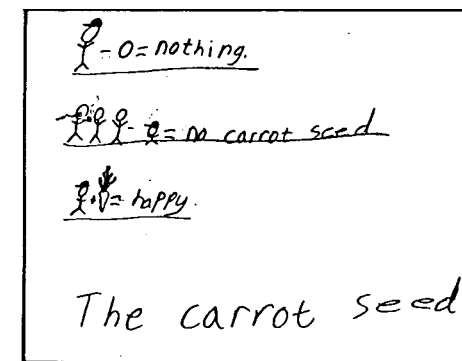 - 0 = nothing.
- = no carrot seed
+ = happy.
The carrot seed